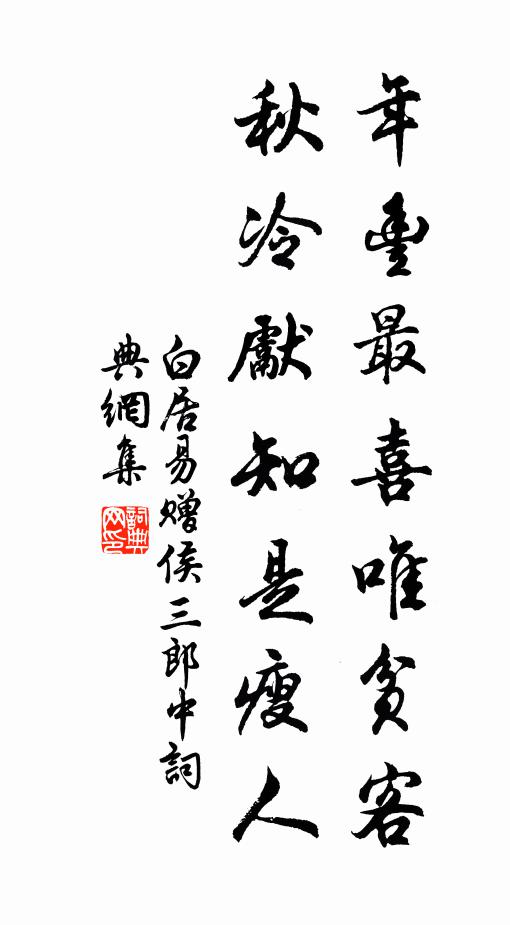 年豐最喜唯貧客
秋冷獻知是瘦人
白居易贈侯三郎中詞
典網集
詞典
网印